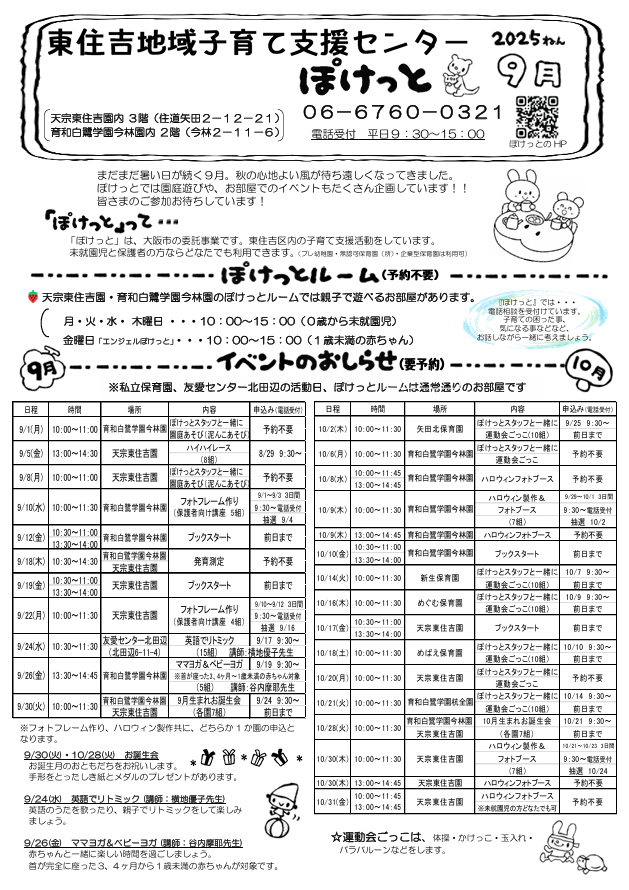 東住吉地域子育て支援センター
2025ねん
ぽけっと
9月
天宗東住吉園内 3階（住道矢田2－12－21）
育和白鷺学園今林園内 2階（今林2－11－6）
06－6760－0321
電話受付 平日9：30～15：00
ぽけっとのHP
まだまだ暑い日が続く9月。秋の心地よい風が待ち遠しくなってきました。
ぽけっとでは園庭遊びや、お部屋でのイベントもたくさん企画しています！！
皆さまのご参加お待ちしています！
「ぽけっと」って・・・
「ぽけっと」は、大阪市の委託事業です。東住吉区内の子育て支援活動をしています。
未就園児と保護者の方ならどなたでも利用できます。（プレ幼稚園・無認可保育園（所）・企業型保育園は利用可）
ぽけっとルーム(予約不要)
天宗東住吉園・育和白鷺学園今林園のぽけっとルームでは親子で遊べるお部屋があります。
月・火・水・ 木曜日 ・・・10：00～15：00（0歳から未就園児）
金曜日「エンジェルぽけっと」・・・10：00～15：00（1歳未満の赤ちゃん）
『ぽけっと』では・・・
電話相談を受付けています。
子育ての困った事、
気になる事などなど、
お話しながら一緒に考えましょう。
9月
イベントのおしらせ(要予約)
10月
※私立保育園、友愛センター北田辺の活動日、ぽけっとルームは通常通りのお部屋です
日程 時間 場所 内容 申込み(電話受付)
9/1(月) 10:00～11:00 育和白鷺学園今林園 ぽけっとスタッフと一緒に 園庭あそび(泥んこあそび) 予約不要
9/5(金) 13:00～14:30 天宗東住吉園 ハイハイレース (8組) 8/29 9:30～
9/8(月) 10:00～11:00 天宗東住吉園 ぽけっとスタッフと一緒に 園庭あそび(泥んこあそび) 予約不要
9/10(水) 10:00～11:30 育和白鷺学園今林園 フォトフレーム作り (保護者向け講座 5組) 9/1～9/3 3日間 9:30～電話受付 抽選 9/4
9/12(金) 10:30～11:00 13:30～14:00 育和白鷺学園今林園 ブックスタート 前日まで
9/18(木) 10:30～14:30 育和白鷺学園今林園 天宗東住吉園 発育測定 予約不要
9/19(金) 10:30～11:00 13:30～14:00 天宗東住吉園 ブックスタート 前日まで
9/22(月) 10:00～11:30 天宗東住吉園 フォトフレーム作り (保護者向け講座 4組) 9/10～9/12 3日間 9:30～電話受付 抽選 9/16
9/24(水) 10:30～11:30 友愛センター北田辺 (北田辺6-11-4) 英語でリトミック (15組) 講師:横地優子先生 9/17 9:30～
9/26(金) 13:30～14:45 育和白鷺学園今林園 ママヨガ＆ベビーヨガ ※首が座った3,4ヶ月～1歳未満の赤ちゃん対象 (5組) 講師:谷内摩耶先生 9/19 9:30～
9/30(火) 10:00～11:00 育和白鷺学園今林園 天宗東住吉園 9月生まれお誕生会 (各園7組) 9/24 9:30～ 前日まで
※フォトフレーム作り、ハロウィン製作共に、どちらか1か園の申込と
なります。
日程 時間 場所 内容 申込み(電話受付)
10/2(木) 10:00～11:30 矢田北保育園 ぽけっとスタッフと一緒に 運動会ごっこ(10組) 9/25 9:30～ 前日まで
10/6(月) 10:00～11:30 育和白鷺学園今林園 ぽけっとスタッフと一緒に 運動会ごっこ 予約不要
10/8(水) 10:00～11:45 13:00～14:45 育和白鷺学園今林園 ハロウィンフォトブース 予約不要
10/9(木) 10:00～11:30 育和白鷺学園今林園 ハロウィン製作＆ フォトブース (7組) 9/29～10/1 3日間 9:30～電話受付 抽選 10/2
10/9(木) 13:00～14:45 育和白鷺学園今林園 ハロウィンフォトブース 予約不要
10/10(金) 10:30～11:00 13:30～14:00 育和白鷺学園今林園 ブックスタート 前日まで
10/14(火) 10:00～11:30 新生保育園 ぽけっとスタッフと一緒に 運動会ごっこ(10組) 10/7 9:30～ 前日まで
10/16(木) 10:00～11:30 めぐむ保育園 ぽけっとスタッフと一緒に 運動会ごっこ(10組) 10/9 9:30～ 前日まで
10/17(金) 10:30～11:00 13:00～14:00 天宗東住吉園 ブックスタート 前日まで
10/18(土) 10:00～11:30 めばえ保育園 ぽけっとスタッフと一緒に 運動会ごっこ(10組) 10/10 9:30～ 前日まで
10/20(月) 10:00～11:30 天宗東住吉園 ぽけっとスタッフと一緒に 運動会ごっこ 予約不要
10/21(火) 10:00～11:30 育和白鷺学園杭全園 ぽけっとスタッフと一緒に 運動会ごっこ(10組) 10/14 9:30～ 前日まで
10/28(火) 10:00～11:30 育和白鷺学園今林園 天宗東住吉園 10月生まれお誕生会 (各園7組) 10/21 9:30～ 前日まで
10/30(木) 10:00～11:30 天宗東住吉園 ハロウィン製作＆ フォトブース (7組) 10/21～10/23 3日間 9:30～電話受付 抽選 10/24
10/30(木) 13:00～14:45 天宗東住吉園 ハロウィンフォトブース 予約不要
10/31(金) 10:00～11:45 13:00～14:45 天宗東住吉園 ハロウィンフォトブース ※未就園児の方どなたでも可 予約不要
9/30(火)・10/28(火) お誕生会
お誕生月のおともだちをお祝いします。
手形をとったしき紙とメダルのプレゼントがあります。
9/24(水) 英語でリトミック (講師：横地優子先生)
英語のうたを歌ったり、親子でリトミックをして楽しみ
ましょう。
9/26(金) ママヨガ＆ベビーヨガ (講師：谷内摩耶先生)
赤ちゃんと一緒に楽しい時間を過ごしましょう。
首が完全に座った3、4ヶ月から1歳未満の赤ちゃんが対象です。
☆運動会ごっこは、体操・かけっこ・玉入れ・
パラバルーンなどをします。